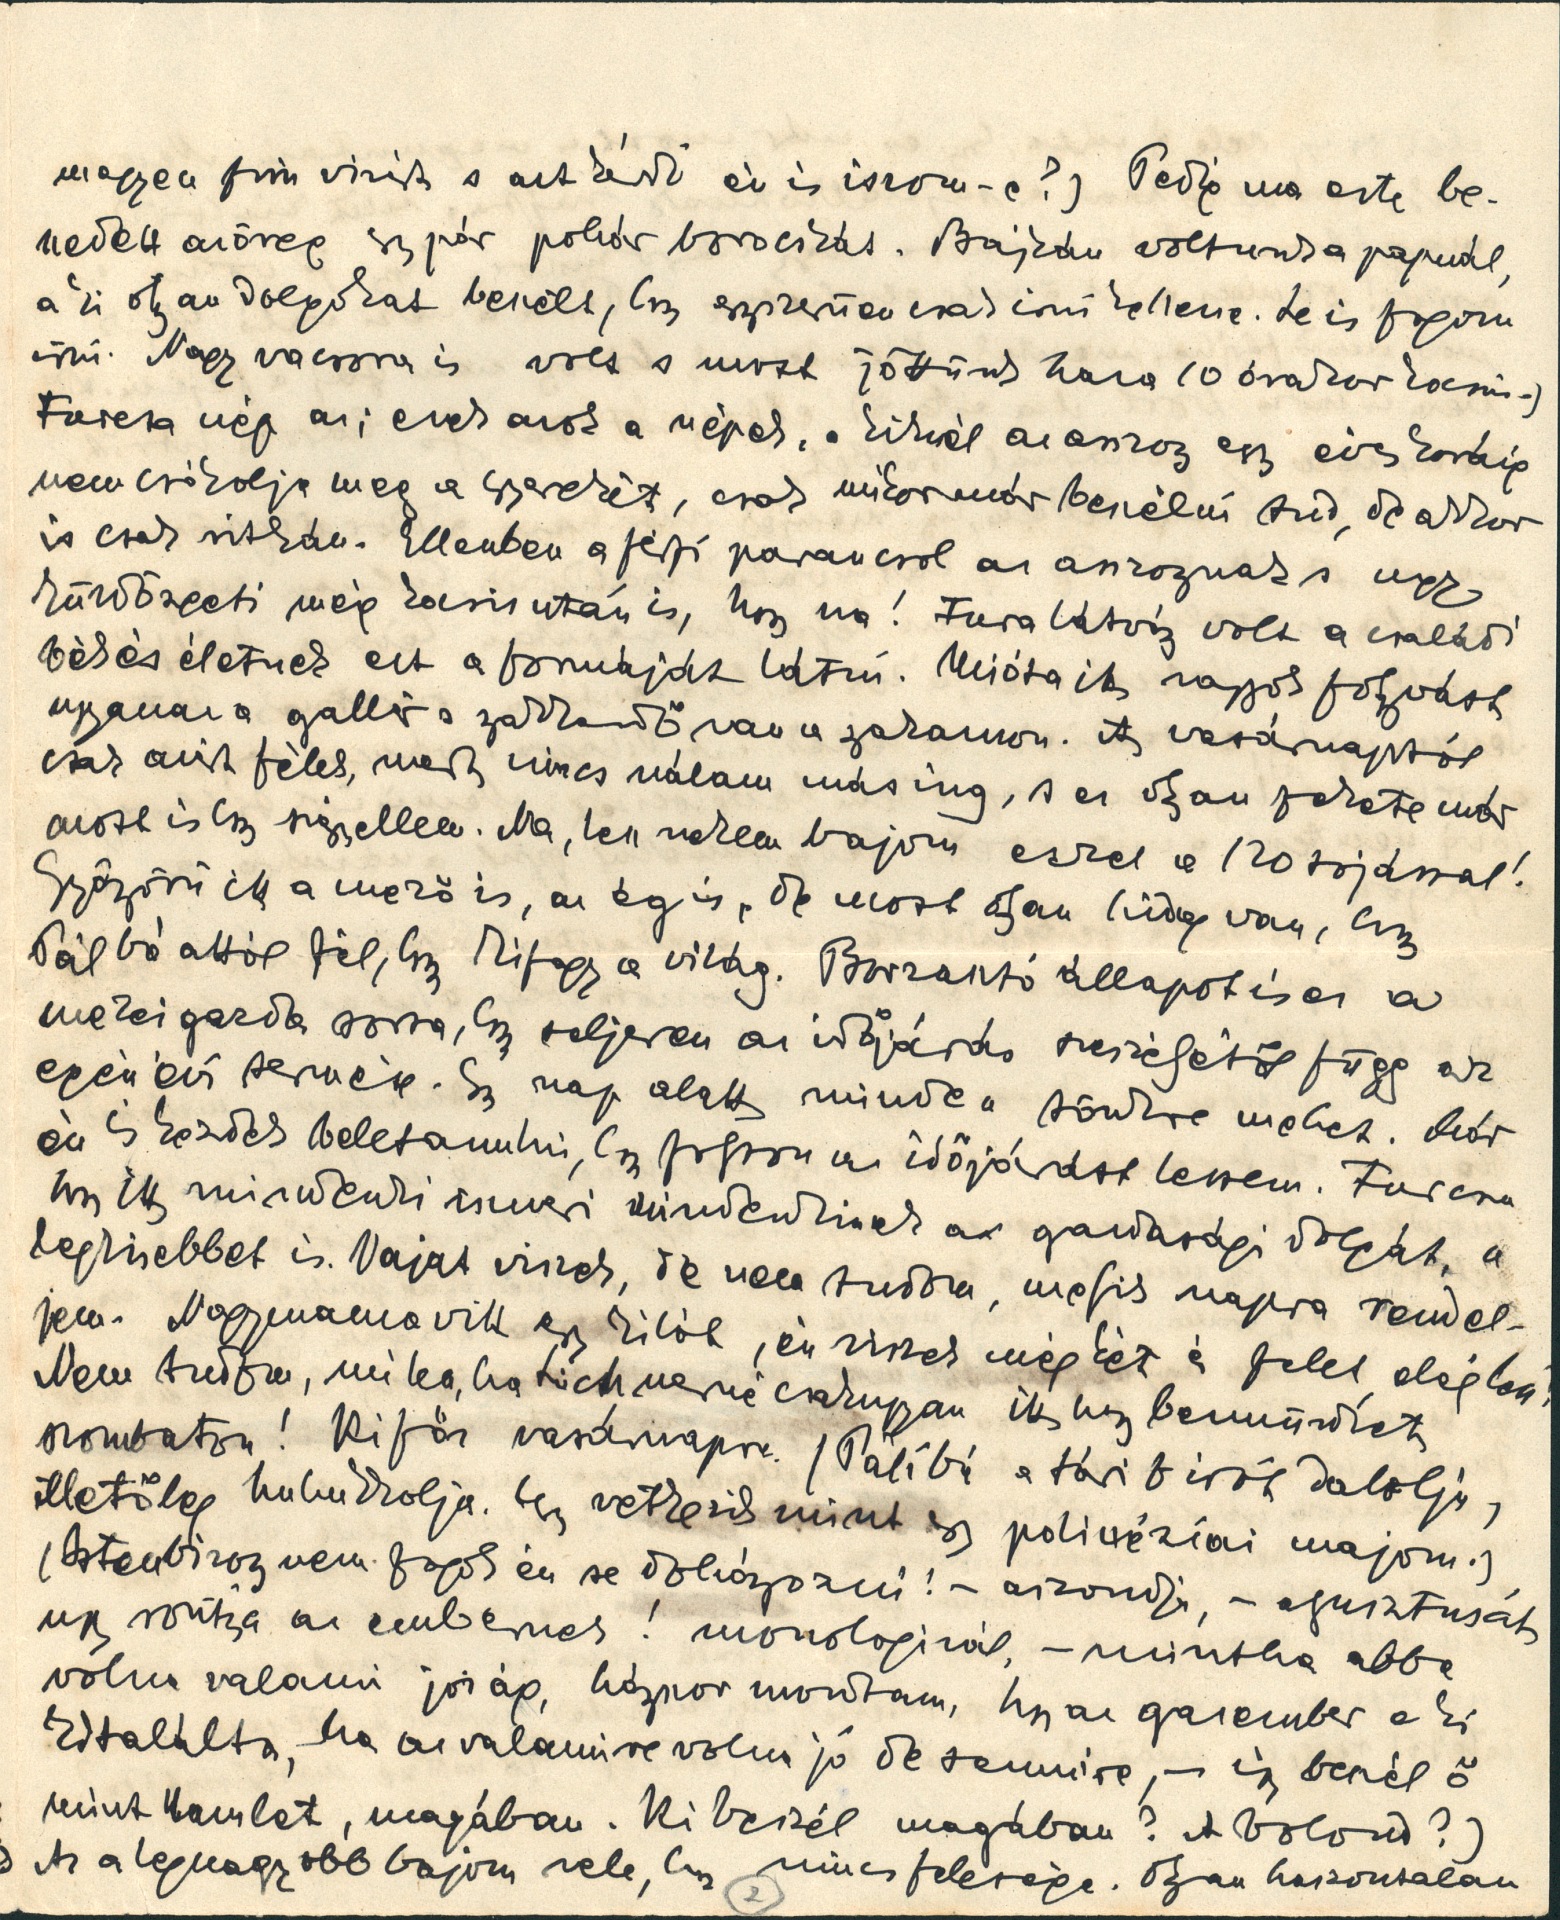 magyon finom vizet s azt kérdi én is iszom-e?) Pedig ma este be-
nedett az öreg egy pár pohár borocskát. Bajzán voltunk a papnál,
a ki olyan dolgokat beszélt, hogy egyszerüen csak irni kellene. Le is fogom
irni. Nagy vacsora is volt s most jöttünk haza 10 órakor kocsin-)
Furcsa nép az; ezek azok a népek, a kiknél az asszony egy éves koráig
nem csókolja meg a gyerekét, csak mikor már beszélni tud, de akkor
is csak ritkán. Ellenben a férfi parancsol az asszonynak s ugy
küldözgeti még kocsis után is, hogy na! Fura látvány volt a családi
békés életnek ezt a formáját látni. Mióta itt vagyok folyvást
ugyanaz a gallér s zakkendő van a nyakamon. Itt vasárnaptól
csak azért félek, mert nincs nálam más ing, s ez olyan fekete már
most is hogy szégyellem. Na, lesz nekem bajom ezzel a 120 tojással!
Gyönyörü itt a mező is, az ég is, de most olyan hideg van, hogy
Pál bá attól fél, hogy kifagy a világ. Borzasztó állapot is ez a
mezei gazda sorsa, hogy teljesen az időjárás szeszélyétől függ az
egész évi termése. Egy nap alatt minden tönkre mehet. Már
én is kezdek beletanulni, hogy folyton az időjárást lessem. Furcsa
hogy itt mindenki ismeri mindenkinek a gazdasági dolgát, a
legkisebbet is. Vajat viszek, de nem tudom, melyik napra rendel-
jem. Nagymama vitt egy kilót, én viszek még két és felet, elég lesz?
Nem tudom, mi lesz, ha Lucit verné csakugyan itt hogy bemüvelet
szombaton! Kifőz vasárnapra. (Páli bá a tári birót dalolja,
illetőleg huhukkolja. Ugy vetkezik mint egy polinéziai majom.)
(Istenbizony nem fogok én se dohányozni! – aszondja, – aguszTusát
ugy rontja az embernek! monologizál, – mintha abba
volna valami jóság, hányszor mondtam, hogy az gazember a ki
kitalálta, ha az valamire volna jó de semmire, – igy beszél ő
mint Hamlet, magában. Ki beszél magában? A bolond?)
Az a legnagyobb bajom vele, hogy nincs felesége. Olyan haszontalan
2